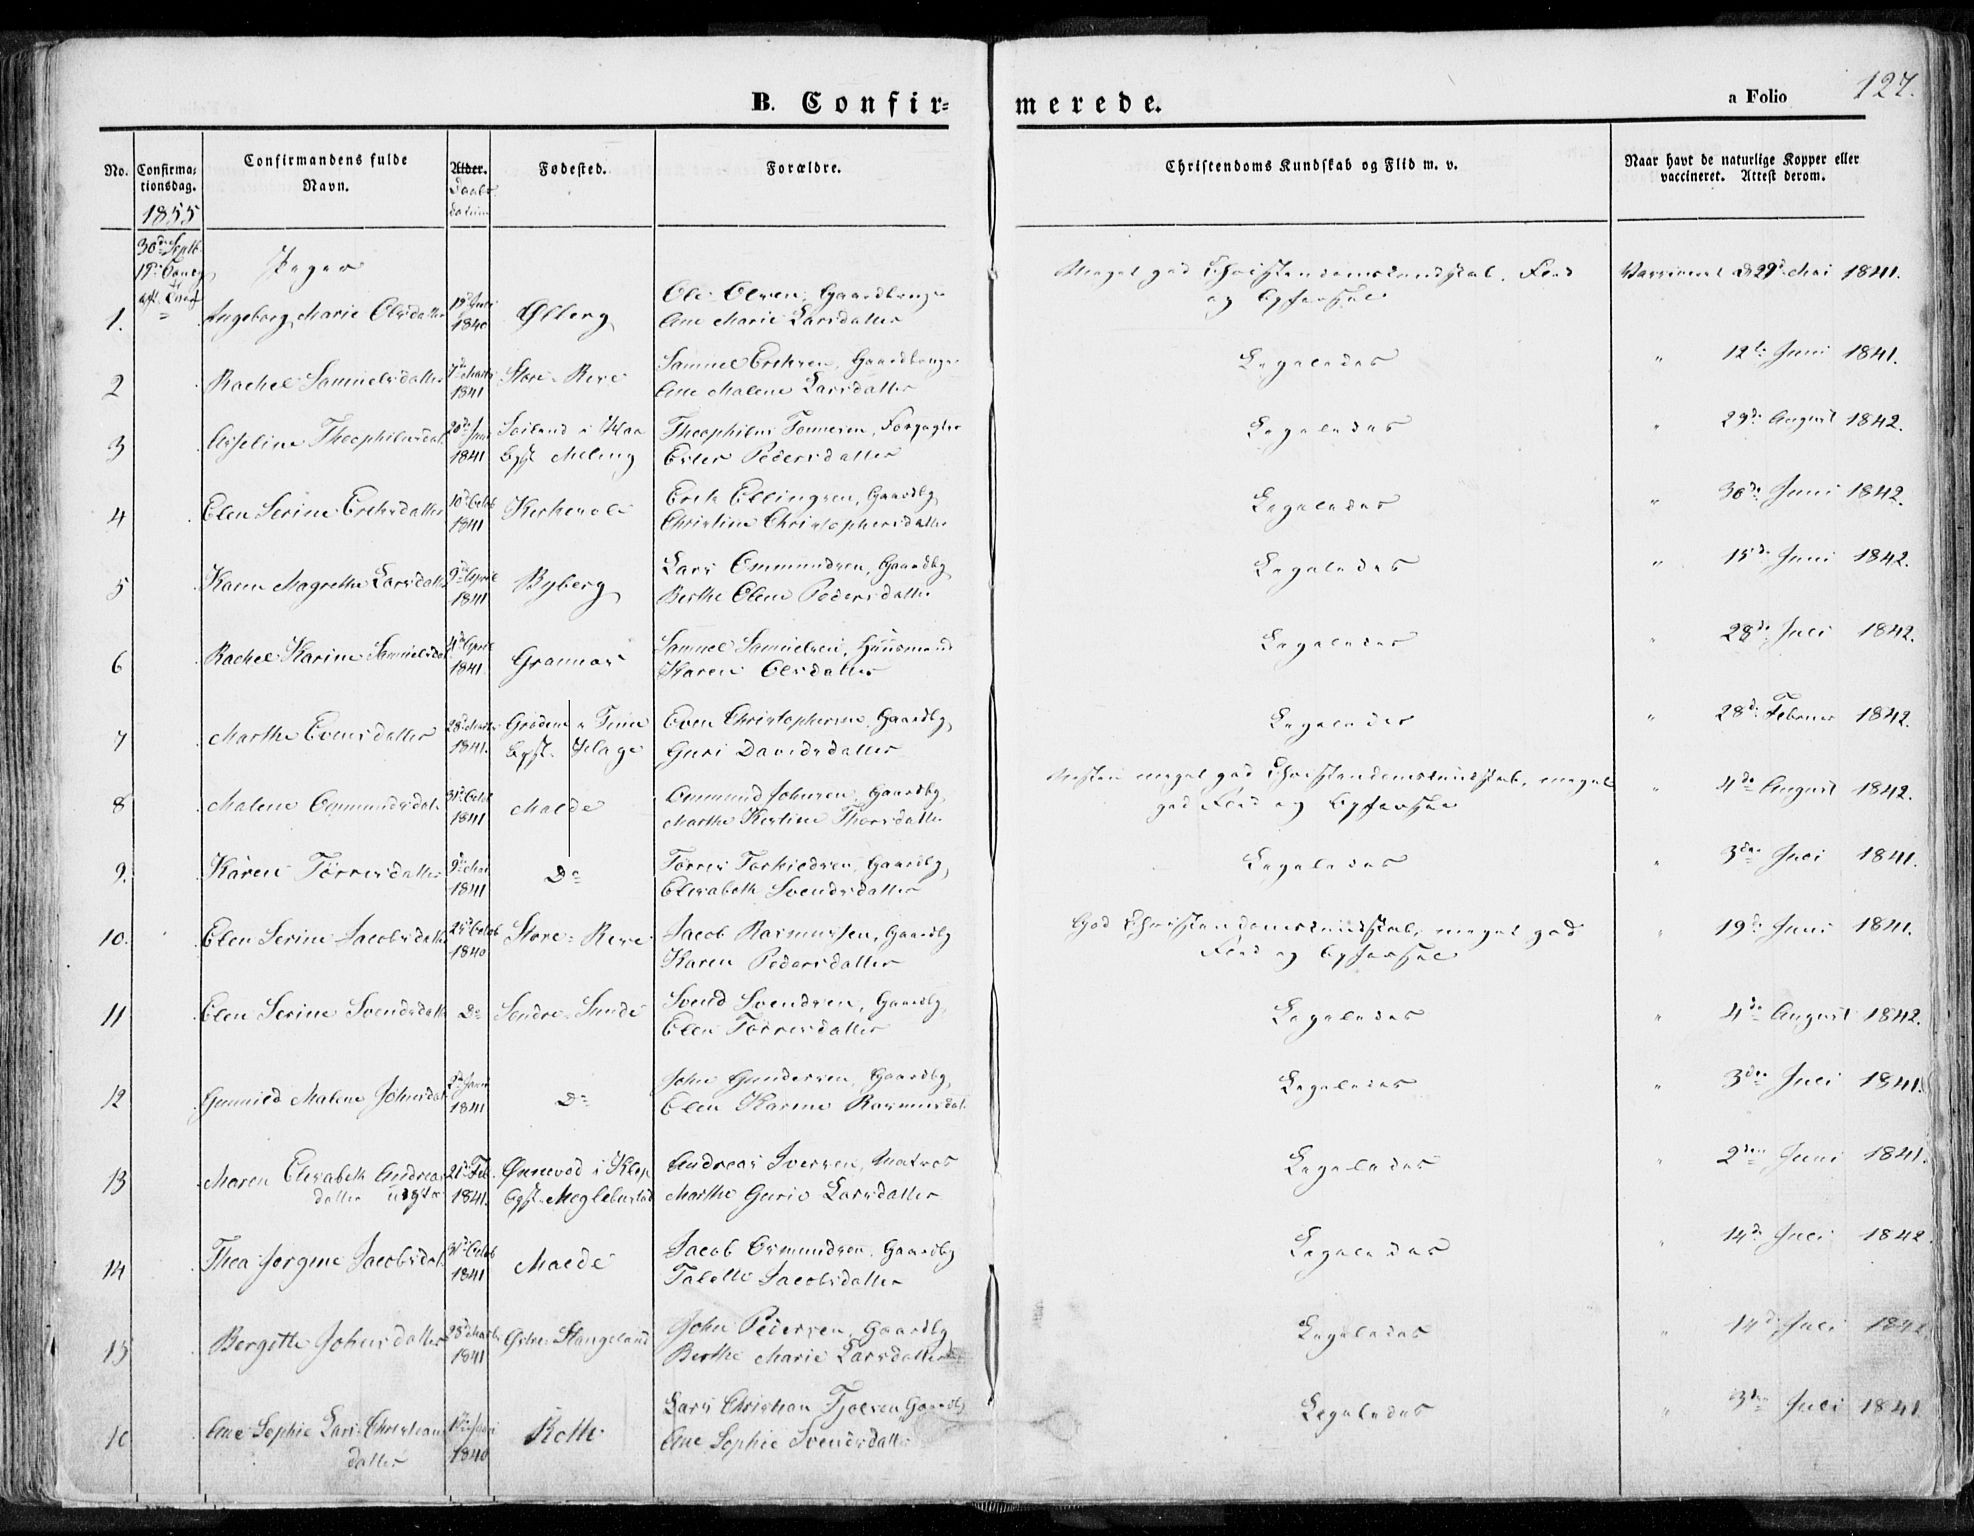 B. Confir=
merede.
a Folio
127.
No.
Confirma=
tionsdag.
1855
Confirmandens fulde
Navn.
Alder.
Daabs
datum
Fødested.
Forældre.
Christendoms Kundskab og Flid m. v.
Naar havt de naturlige Kopper eller
vaccineret. Attest derom.
30de Septb.
Piger
1. Ingeborg Marie Olsdatter
1840
Ølberg
Ole Olsen, Gaardbruger
Ane Marie Larsdatter
Meget god Christendomskundskab, Flid
og Opførsel
Vaccineret d 29de Mai 1841.
2 Rachel Samuelsdatter
7de Marts
1841
Store-Reve
Samuel Eriksen, Gaardbruger
Ane Malene Larsdatter
Ligeledes
" 12te Juni 1841.
3 Theophilusdat.
1841
Soiland i Haa
Opf. Meling
Theophilus Tønnesen, Forpagter
Ester Pedersdatter
Ligeledes
" 29de August 1842.
4 Elen Serine Eriksdatter
10de Octob
1841
Kirkevole
Erik Ellingsen, Gaardbg
Christine Christophersdatter
Ligeledes
" 30de Juni 1842.
5 Karen Magrethe Larsdatt
9de April
1841
Byberg
Lars Ommundsen, Gaardbg
Berthe Olene Pedersdatter
Ligeledes
" 15de Juni 1842.
6 Rachel Karine Samuelsdat
4de April
1841
Grannæs
Samuel Samuelsen, Huusmand
Karen Olsdatter
Ligeledes
" 28de Juli 1842.
7 Marthe Evensdatter
28de Marts
1841.
Grødem i Time
Opf.
Even Christophersen, Gaardbg
Guri Davidsdatter
Ligeledes
" 28de Februar 1842.
8 Malene Ommundsdat.
31te Octob
1841
Malde
Ommund Johnsen, Gaardbg
Marthe Kirstine Thorsdatter
Næsten meget god Christendomskundskab, meget
god Flid og Opførsel
" 4de August 1842.
9. Karen Tørresdatter
9de Mai
1841
Do
Tørres Torkildsen, Gaardbg
Elisabeth Svendsdatter
Ligeledes
" 3die Juli 1841.
10. Elen Serine Jacobsdatter
25de Octob
1840
Store-Reve
Jacob Rasmussen, Gaardbg
Karen Pedersdatter
God Christendomskundskab, meget god
Flid og Opførsel
" 19de Juni 1841.
11 Elen Serine Svendsdatt
Do
Søndre-Sunde
Svend Svendsen, Gaardbg
Elen Tørresdatter
Ligeledes
" 4de August 1842.
12 Gunnild Malene Johnsdat
1841
Do
John Gundersen, Gaardbg
Elen Karine Rasmusdat.
Ligeledes
" 3die Juli 1841.
13 Maren Elisabeth Andreas
datter
21de Feb.
1841.
i Klep
Opf.
Andreas Iversen, Matros
Marthe Gurie Larsdatter
Ligeledes
" 2den Juni 1841.
14 Thea Jørgine Jacobsdat.
31te Octob
1841
Malde
Jacob Osmundsen, Gaardbg
Talette Jacobsdatter
Ligeledes
" 14de Juli 1842
15 Bergitte Johnsdatter
28de Marts
1841
Østre-Stangeland
John Pedersen, Gaardbg
Berthe Marie Larsdatter
Ligeledes
" 14de Juli 1842
16 Ane Sophie Lars Christian
datter
1840
Kolle
Lars Christian Tjølsen Gaardbg
Ane Sophie Svendsdatter
Ligeledes
" 3die Juli 1841